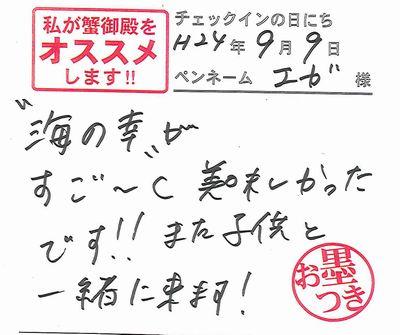 私が蟹御殿を
オススメ
します!!
チェックインの日にち
H24年9月9日
ペンネーム エガ 様
"海の幸"が
すご〜く美味しかった
です!! また子供と
一緒に来ます!
お墨つき